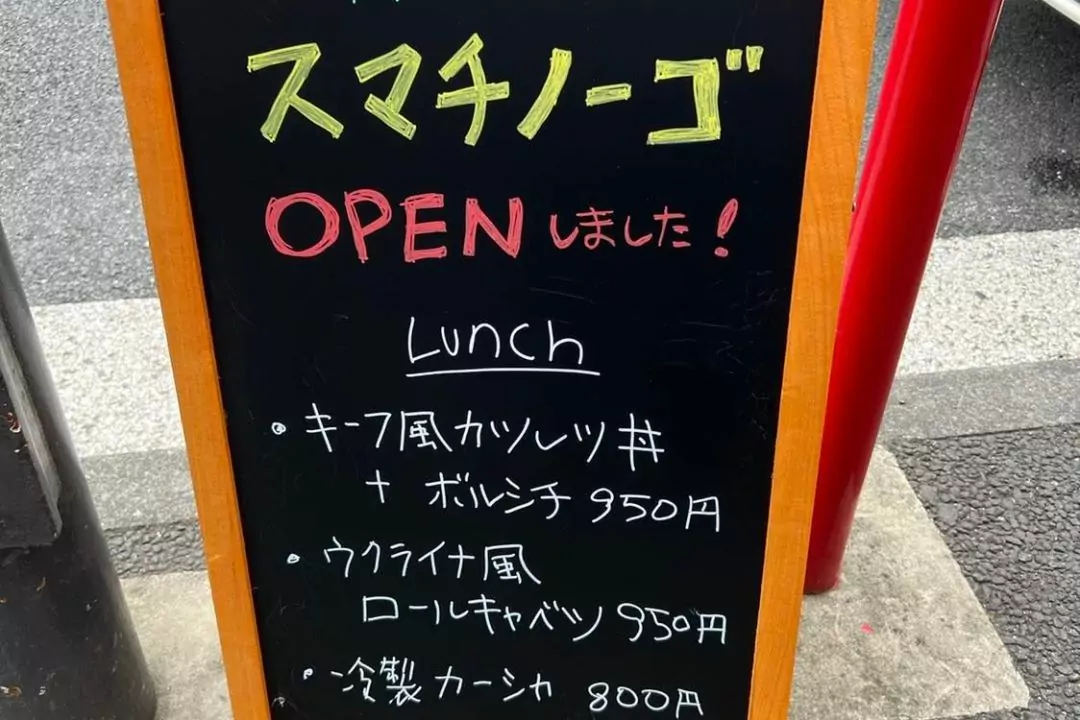 スマチノーゴ
OPENしました!
Lunch
・キーフ風カツレツ丼
+ ボルシチ 950円
・ウクライナ風
ロールキャベツ 950円
・冷製カーシャ 800円